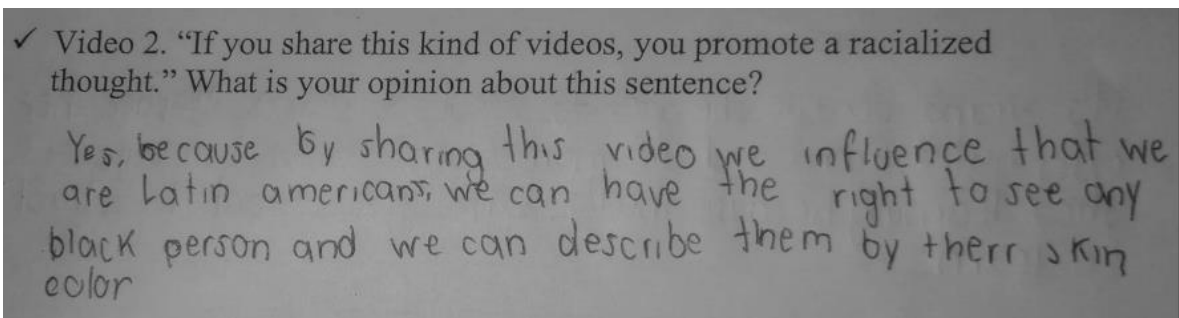 ✓ Video 2. “If you share this kind of videos, you promote a racialized
thought.” What is your opinion about this sentence?
Yes, because by sharing this video we influence that we
are Latin americans, we can have the right to see any
black person and we can describe them by therr skin
color